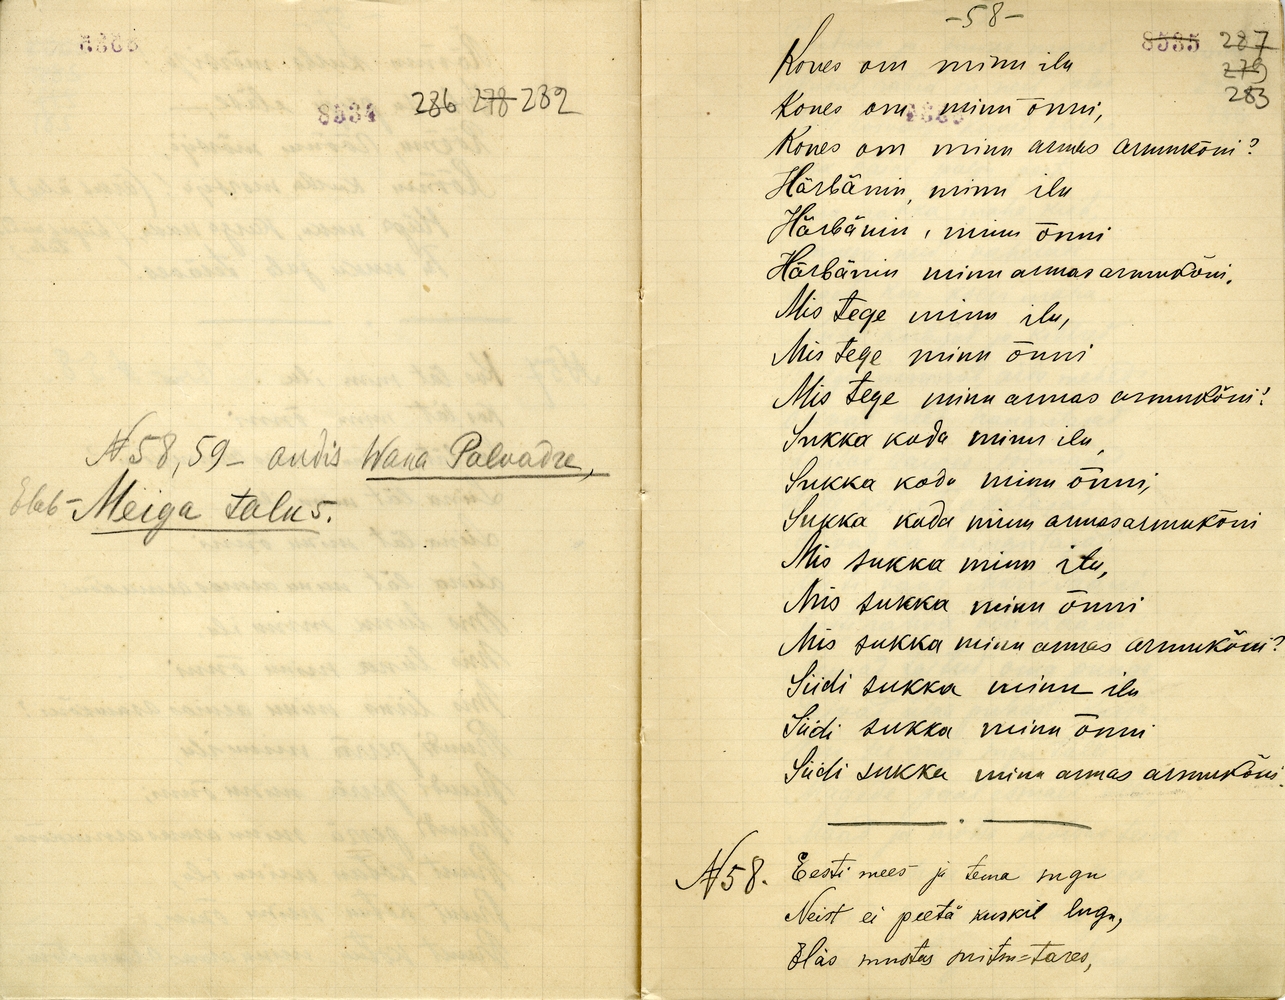 8534 286 278 282
N 58, 59 – andis Wana Palvadre,
Elab – Meiga talus.
– 58 –
8535 287
279
283
Kones om minu ilu
Kones om minu õnni,
Kones om minu armas armukõni?
Härbänin, minu ilu
Härbänin, minu õnni
Härbänin minu armas armukõni.
Mis tege minu ilu,
Mis tege minu õnni
Mis tege minu armas armukõni?
Sukka koda minu ilu,
Sukka koda minu õnni,
Sukka koda minu armas armukõni
Mis sukka minu ilu,
Mis sukka minu õnni
Mis sukka minu armas armukõni?
Siidi sukka minu ilu
Siidi sukka minu õnni
Siidi sukka minu armas armukõni.
N 58. Eesti mees ja tema sugu
Neist ei peetä kuskil lugu,
Eläs mustas suitsu=tares,